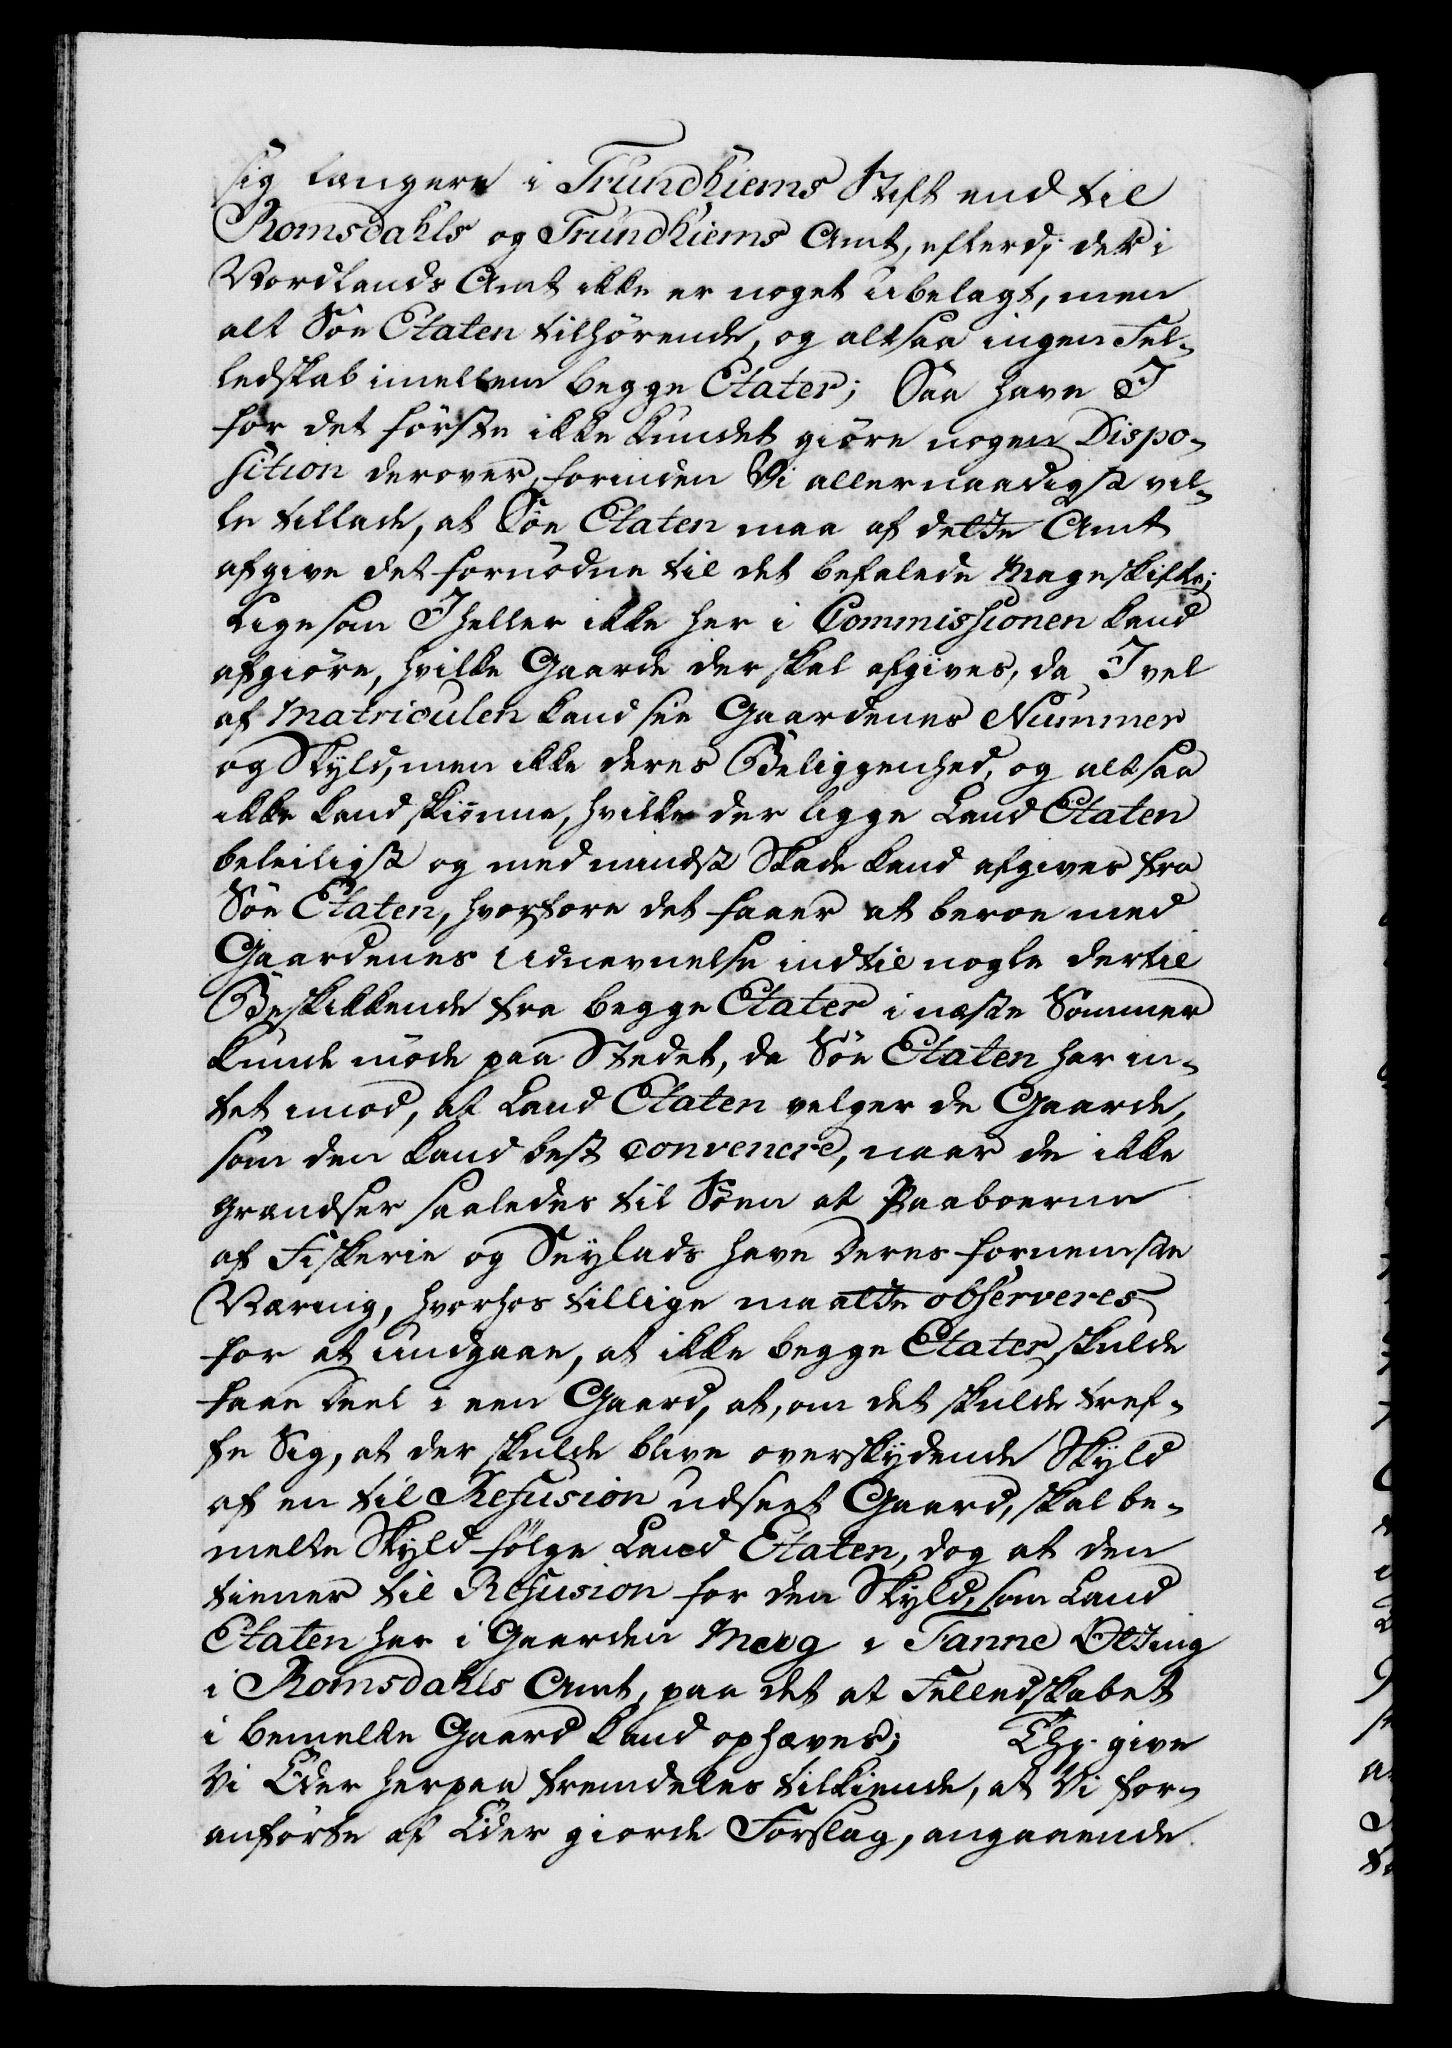 sig længere i Trundhiems Stift end til
Romsdahls og Trundhiems Amt, efterdj det i
Nordlands Amt ikke er noget ubelagt, men
alt Søe Etaten tilhørende, og altsaa ingen Fel-
ledskab imellem begge Etater; Saa have I
for det første ikke kundet giøre nogen Dispo-
sition derover, forinden Vi allernaadigst vil-
le tillade, at Søe Etaten maa af dette Amt
afgive det fornødne til det befalede Mageskifte;
Ligesom I heller ikke her i Commissionen kand
afgiøre, hvilke Gaarde der skal afgives, da I vel
af Matriculen kand see Gaardenes Nummer
og Skyld, men ikke deres Beliggenhed, og altsaa
ikke kand skiønne, hvilke der ligge Land Etaten
beleiligst og med mindst Skade kand afgives fra
Søe Etaten, hvorfore det faaer at beroe med
Gaardenes Udnevnelse indtil nogle dertil
Beskikkende fra begge Etater i næste Sommer
kunde møde paa Stedet, da Søe Etaten har in-
tet imod, at Land Etaten velger de Gaarde,
som den kand best convenere, naar de ikke
grændser saaledes til Søen at Paaboerne
af Fiskerie og Seylads have deres fornemste
Næring, hvorhos tillige maatte observeres
for at undgaae, at ikke begge Etater skulde
faae Deel i een Gaard, at, om det skulde tref-
fe Sig, at der skulde blive overskydende Skyld
af en til Refusion udseet Gaard, skal be-
melte Skyld følge Land Etaten, dog at den
tiener til Refusion for den Skyld, som Land
Etaten har i Gaarden Møeg i Tanne Otting
i Romsdahls Amt, paa det at Felledskabet
i bemelte Gaard kand ophæves; Thj give
Vi Eder herpaa fremdeles tilkiende, at Vi for-
anførte af Eder giorde Forslag, angaaende